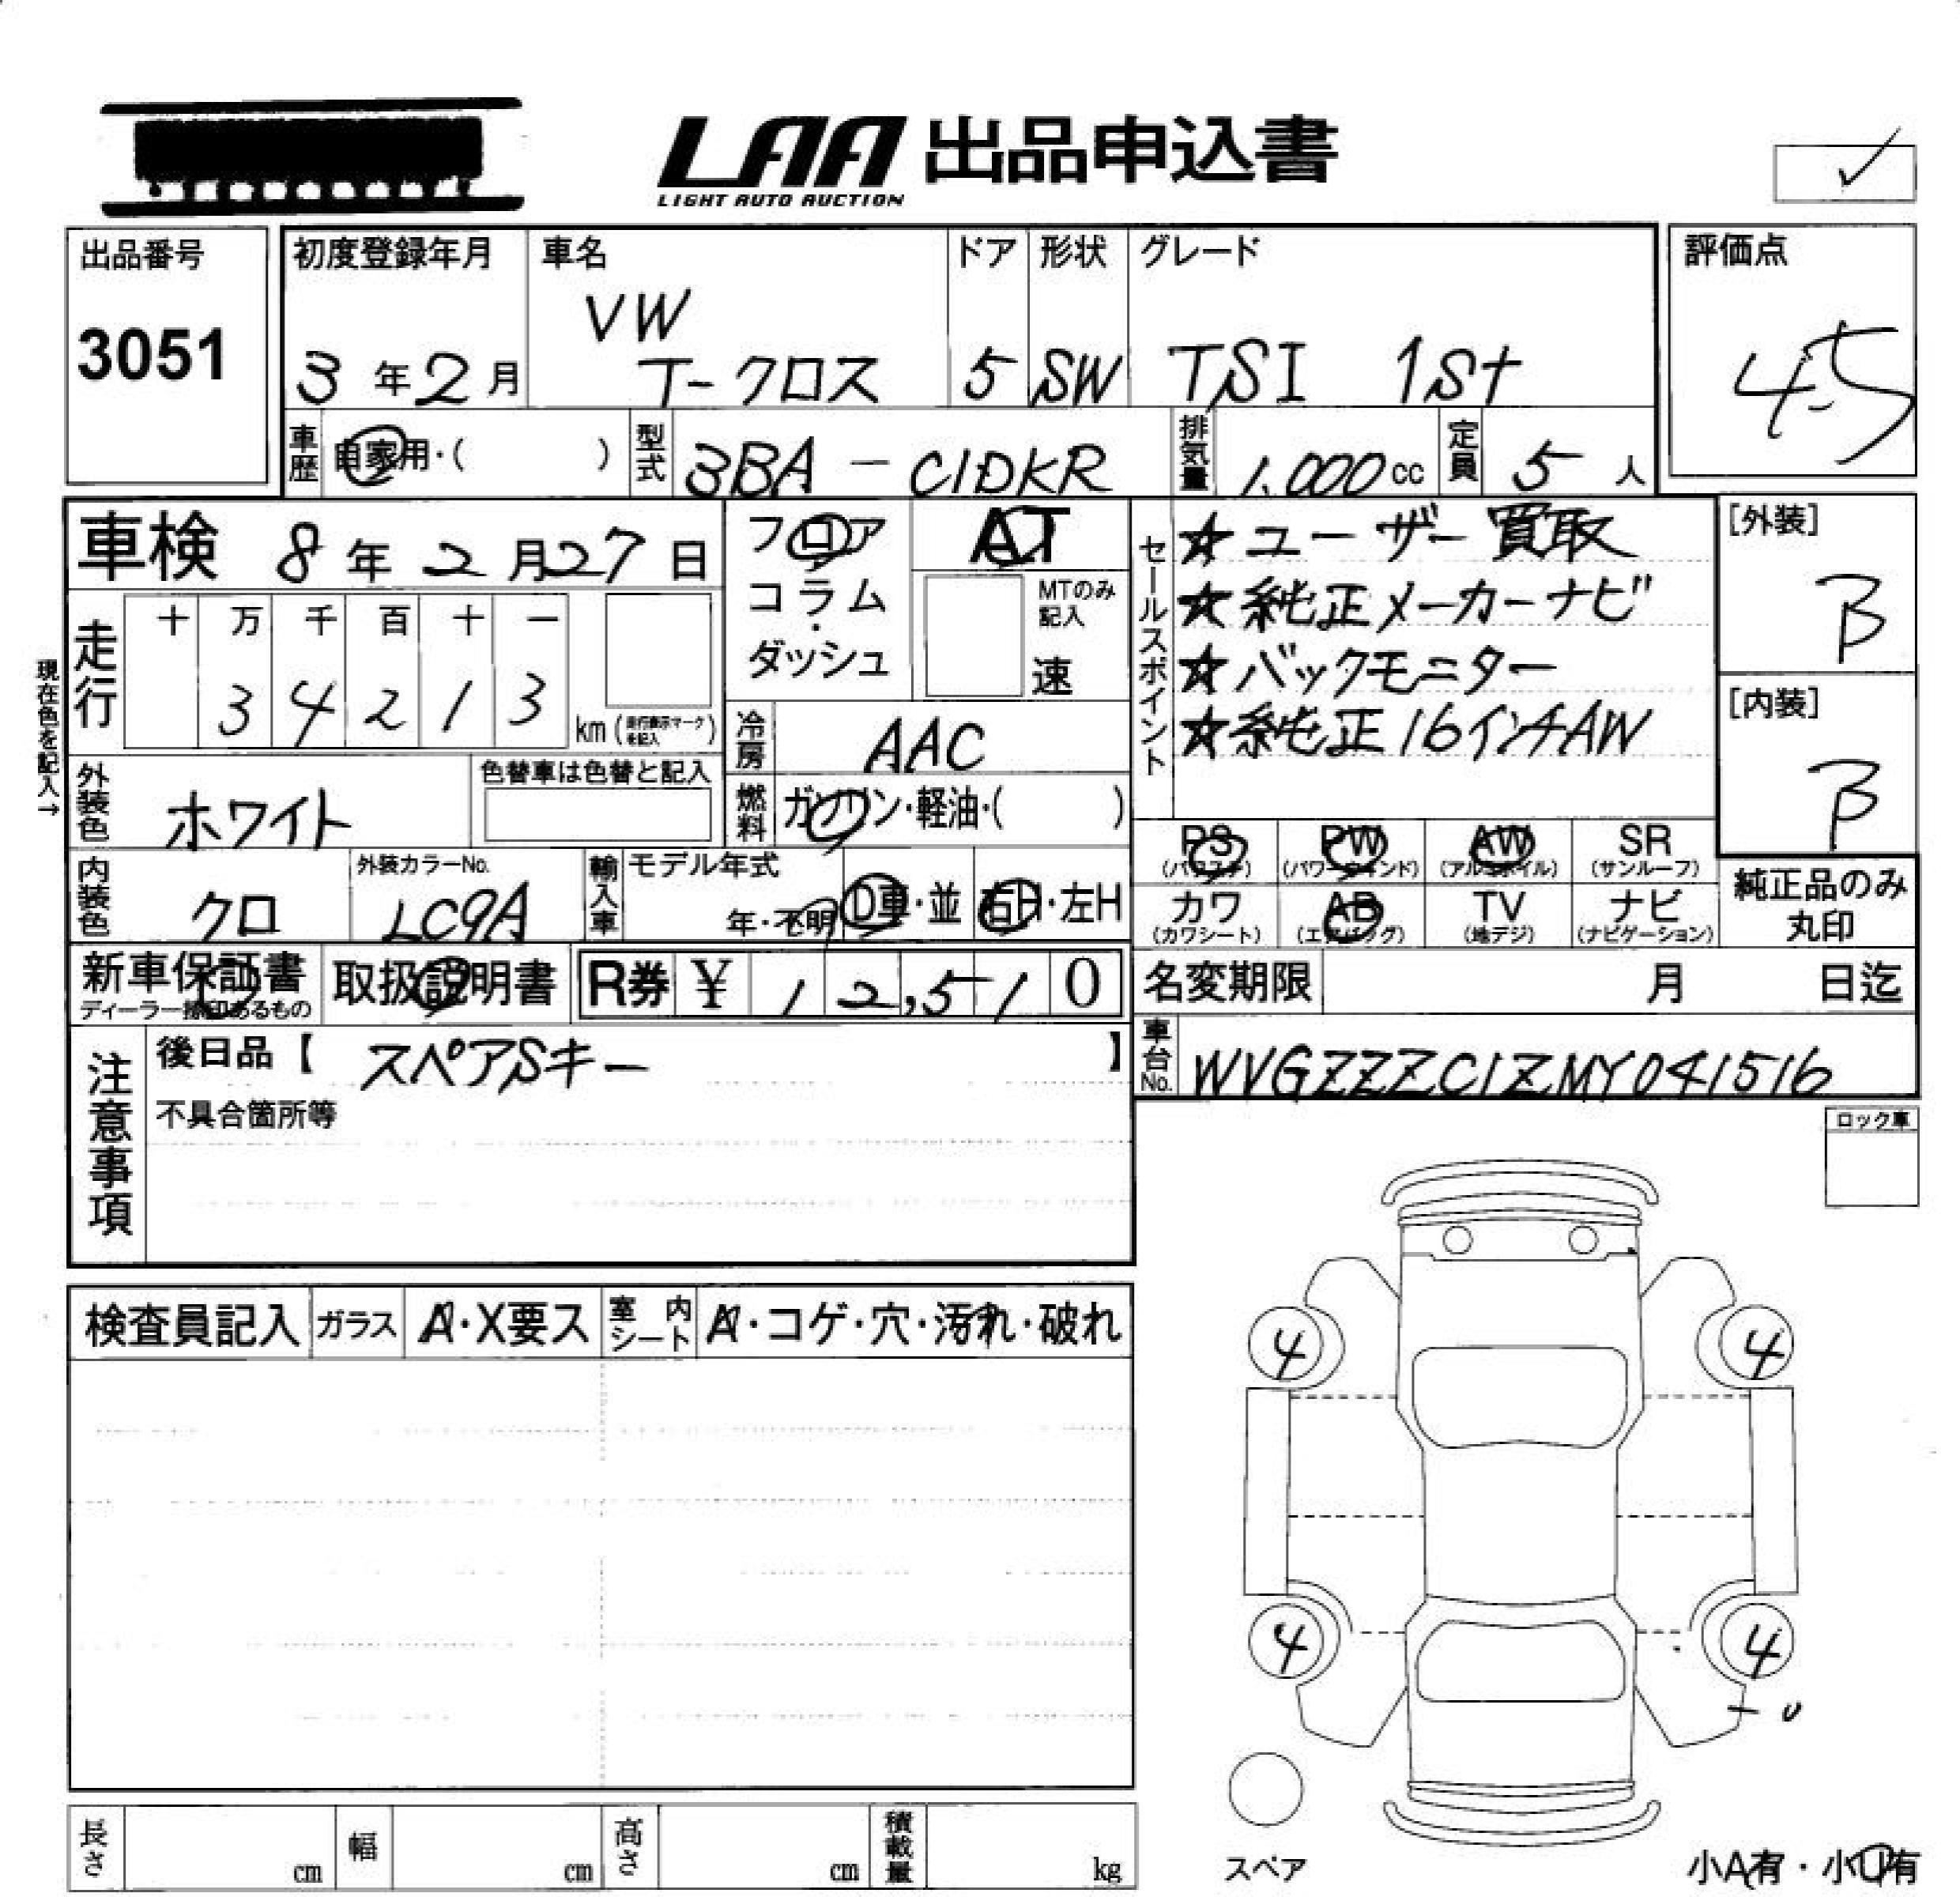 LAA 出品申込書
LIGHT AUTO AUCTION
出品番号
3051
初度登録年月
3年2月
車名
VW
T-クロス
ドア
5
形状
SW
グレード
TSI 1st
評価点
4.5
車歴
自家用・( )
型式
3BA-C1DKR
排気量
1,000cc
定員
5人
車検 8年2月27日
フロア
コラム
・
ダッシュ
AT
MTのみ
記入
速
セールスポイント
☆ユーザー買取
☆純正メーカーナビ
☆バックモニター
☆純正16インチAW
[外装]
B
[内装]
B
現在色を記入→
走行
十 万 千 百 十 一
3 4 2 1 3
km(走行表示マークを記入)
冷房
AAC
外装色
ホワイト
色替車は色替と記入
燃料
ガソリン・軽油・( )
PS
(パワステ)
PW
(パワーウインド)
AW
(アルミホイル)
SR
(サンルーフ)
カワ
(カワシート)
AB
(エアバッグ)
TV
(地デジ)
ナビ
(ナビゲーション)
純正品のみ
丸印
内装色
クロ
外装カラーNo.
LC9A
輸入車
モデル年式
年・不明
D車・並
右H・左H
新車保証書
ディーラー捺印あるもの
取扱説明書
R券 ¥ 12,510
名変期限 月 日迄
車台No.
WVGZZZC1ZMY041516
注意事項
後日品【 スペアSキー 】
不具合箇所等
ロック車
検査員記入
ガラス
A・X要ス
室内シート
A・コゲ・穴・汚れ・破れ
4
4
4
4
スペア
小A有・小U有
長さ
cm
幅
cm
高さ
cm
積載量
kg